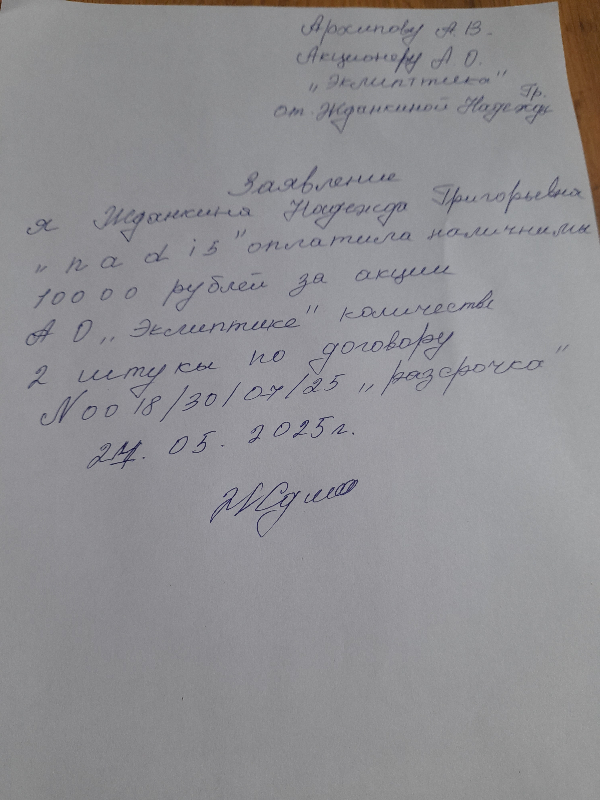 Архипову А.В.
Акционеру А О.
„Эклиптика"
Гр.
от Жданкиной Надежды
Заявление
я Жданкина Надежда Григорьевна
„nadis" оплатила наличными
10000 рублей за акции
А О „Эклиптике" количестве
2 штуки по договору
N 0018/30/07/25 „разсрочка"
27. 05. 2025г.